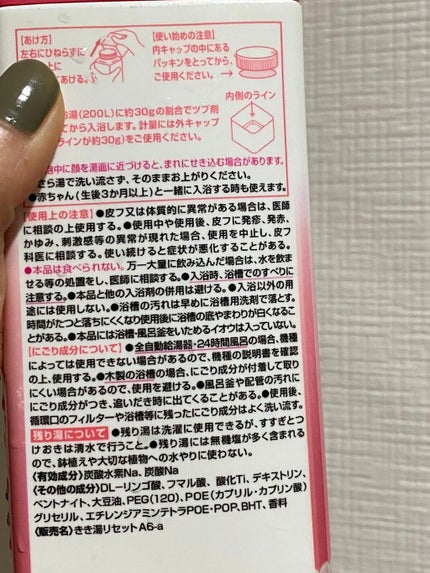 【あけ方】
左右にひねらずに
上に
あける。
【使い始めの注意】
内キャップの中にある
パッキンをとってから、
ご使用ください。
内側のライン
湯(200L)に約30gの割合でツブ剤
てから入浴します。計量には外キャップ
ラインが約30g)をご使用ください。
中に顔を湯面に近づけると、まれにせき込む場合があります。
さら湯で洗い流さず、そのままお上がりください。
●赤ちゃん(生後3か月以上)と一緒に入浴する時も使えます。
【使用上の注意】●皮フ又は体質的に異常がある場合は、医師
に相談の上使用する。●使用中や使用後、皮フに発疹、発赤、
かゆみ、刺激感等の異常が現れた場合、使用を中止し、皮フ
科医に相談する。使い続けると症状が悪化することがある。
●本品は食べられない。万一大量に飲み込んだ場合は、水を飲ま
せる等の処置をし、医師に相談する。●入浴時、浴槽でのすべりに
注意する。●本品と他の入浴剤の併用は避ける。●入浴以外の用
途には使用しない。●浴槽の汚れは早めに浴槽用洗剤で落とす。
時間がたつと落ちにくくなり使用後に浴槽の底やまわりが白くなるこ
とがある。●本品には浴槽・風呂釜をいためるイオウは入っていない。
【にごり成分について】●全自動給湯器・24時間風呂の場合、機種
によっては使用できない場合があるので、機種の説明書を確認
の上、使用する。●木製の浴槽の場合、にごり成分が付着して取り
にくい場合があるので、使用を避ける。●風呂釜や配管の汚れに
にごり成分がつき、追いだき時に出てくることがある。●使用後、
循環口のフィルターや浴槽等に残ったにごり成分はよく洗い流す。
残り湯について ●残り湯は洗濯に使用できるが、すすぎとつ
けおきは清水で行うこと。●残り湯には無機塩が多く含まれる
ので、鉢植えや大切な植物への水やりに使わない。
〈有効成分〉炭酸水素Na、炭酸Na
〈その他の成分〉DL-リンゴ酸、フマル酸、酸化Ti、デキストリン、
ベントナイト、大豆油、PEG(120)、POE(カプリル・カプリン酸)
グリセリル、エチレンジアミンテトラPOE・POP、BHT、香料
〈販売名〉きき湯リセットA6-a